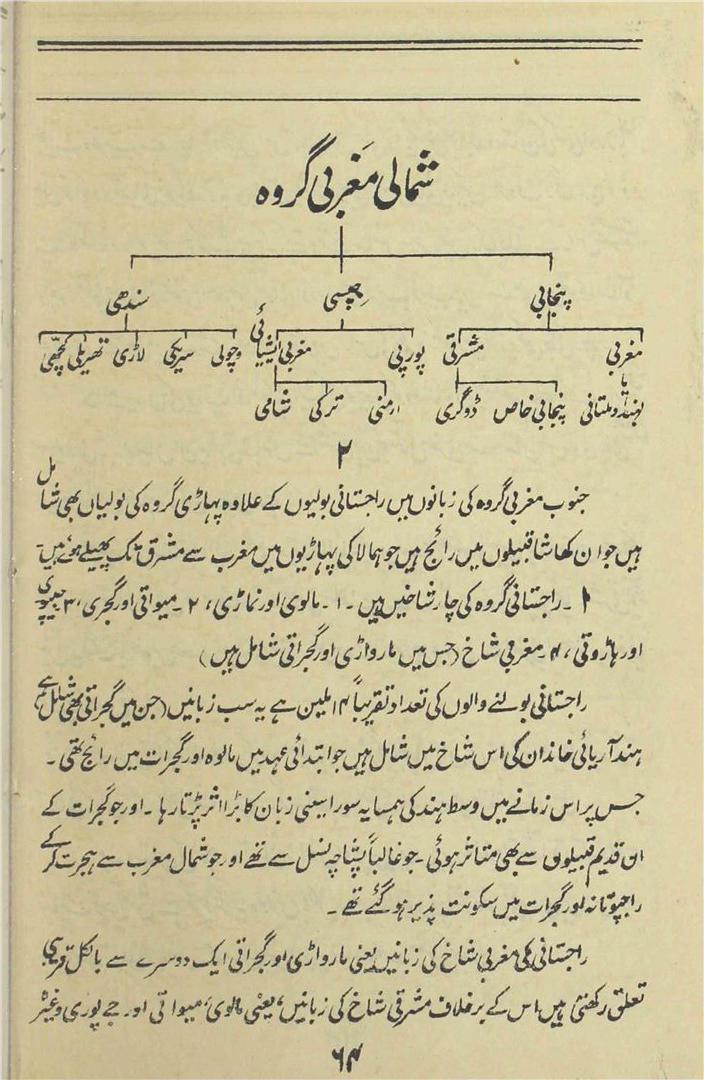 شمالی مغربی گروہ
پنجابی جپسی سندھی
مغربی مشرقی پورپی مغربی ایشیائی وچولی سریکی لاڑی تھریلی کچھی
یا
لہندا و ملتانی پنجابی خاص ڈوگری ارمنی ترکی شامی
۲
جنوب مغربی گروہ کی زبانوں میں راجستانی بولیوں کے علاوہ پہاڑی گروہ کی بولیاں بھی شامل
ہیں جو ان کھاشا قبیلوں میں رائج ہیں جو ہمالا کی پہاڑیوں میں مغرب سے مشرق تک پھیلے ہوئے ہیں۔
۱۔ راجستانی گروہ کی چار شاخیں ہیں۔ ۱۔ مالوی اور نماڑی، ۲۔ میواتی اور گجری، ۳ جیپوری
اور ہاڑوتی، ۴۔ مغربی شاخ (جس میں مارواڑی اور گجراتی شامل ہیں)
راجستانی بولنے والوں کی تعداد تقریباً ۱۴ ملین ہے یہ سب زبانیں (جن میں گجراتی بھی شامل ہے)
ہند آریائی خاندان کی اس شاخ میں شامل ہیں جو ابتدائی عہد میں مالوہ اور گجرات میں رائج تھی۔
جس پر اس زمانے میں وسط ہند کی ہمسایہ سوراسینی زبان کا بڑا اثر پڑتا رہا۔ اور جو گجرات کے
ان قدیم قبیلوں سے بھی متاثر ہوئی۔ جو غالباً پشاچہ نسل سے تھے اور جو شمال مغرب سے ہجرت کر کے
راجپوتانہ اور گجرات میں سکونت پذیر ہو گئے تھے۔
راجستانی کی مغربی شاخ کی زبانیں یعنی مارواڑی اور گجراتی ایک دوسرے سے بالکل قریبی
تعلق رکھتی ہیں اس کے برخلاف مشرقی شاخ کی زبانیں، یعنی مالوی، میواتی اور جے پوری وغیرہ
۶۴